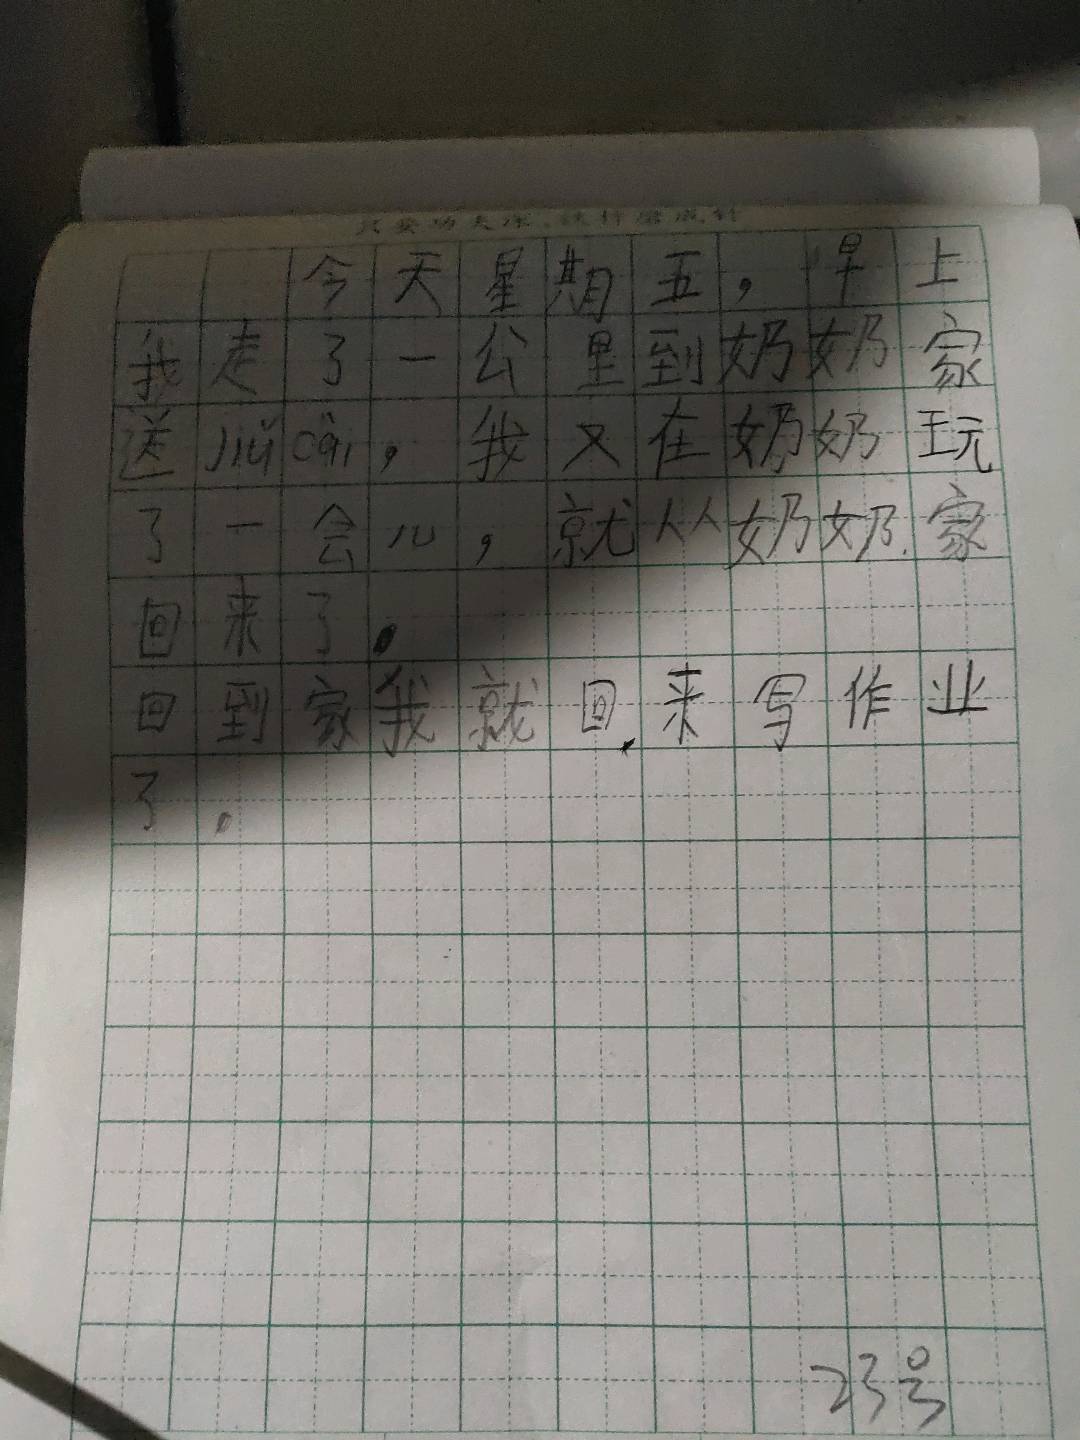 只要功夫深，铁杵磨成针
今天星期五，早上
我走了一公里到奶奶家
送jiǔ cài，我又在奶奶玩
了一会儿，就从奶奶家
回来了。
回到家我就回来写作业
了。
23号